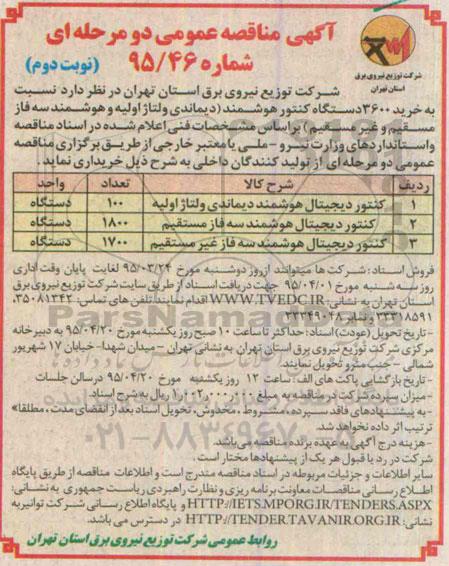 آگهی مناقصه عمومی دو مرحله ای
شماره ۹۵/۴۶ (نوبت دوم)
شرکت توزیع نیروی برق
استان تهران
شرکت توزیع نیروی برق استان تهران در نظر دارد نسبت
به خرید ۳۶۰۰ دستگاه کنتور هوشمند (دیماندی ولتاژ اولیه و هوشمند سه فاز
مستقیم و غیر مستقیم) براساس مشخصات فنی اعلام شده در اسناد مناقصه
واستانداردهای وزارت نیرو - ملی یا معتبر خارجی از طریق برگزاری مناقصه
عمومی دو مرحله ای از تولید کنندگان داخلی به شرح ذیل خریداری نماید.
ردیف شرح کالا تعداد واحد
۱ کنتور دیجیتال هوشمند دیماندی ولتاژ اولیه ۱۰۰ دستگاه
۲ کنتور دیجیتال هوشمند سه فاز مستقیم ۱۸۰۰ دستگاه
۳ کنتور دیجیتال هوشمند سه فاز غیر مستقیم ۱۷۰۰ دستگاه
فروش اسناد: شرکت ها میتوانند از روز دوشنبه مورخ ۹۵/۰۳/۲۴ لغایت پایان وقت اداری
روز سه شنبه مورخ ۹۵/۰۴/۰۱ جهت دریافت اسناد از طریق سایت شرکت توزیع نیروی برق
استان تهران به نشانی: WWW.TVEDC.IR اقدام نمایند. تلفن های تماس: ۳۵۰۸۱۳۴۲،
۲۳۳۱۸۵۹۱، نمابر ۲۳۳۴۹۰۴۸
-تاریخ تحویل (عودت) اسناد: حداکثر تا ساعت ۱۰ صبح روز یکشنبه مورخ ۹۵/۰۴/۲۰ به دبیرخانه
مرکزی شرکت توزیع نیروی برق استان تهران به نشانی تهران - میدان شهدا- خیابان ۱۷ شهریور
شمالی - جنب مترو تحویل نمایند.
-تاریخ بازگشایی پاکت های الف: ساعت ۱۲ روز یکشنبه مورخ ۹۵/۰۴/۲۰ در سالن جلسات
-میزان سپرده شرکت در مناقصه به مبلغ ۱,۰۰۲,۰۰۰,۰۰۰ ریال به شرح اسناد.
-به پیشنهادهای فاقد سپرده، مشروط، مخدوش، تحویل اسناد بعد از انقضای مدت، مطلقا"
ترتیب اثر داده نخواهد شد.
-هزینه درج آگهی به عهده برنده مناقصه می باشد.
شرکت در رد یا قبول هر یک از پیشنهادها مختار است.
سایر اطلاعات و جزئیات مربوطه در اسناد مناقصه مندرج است و اطلاعات مناقصه از طریق پایگاه
اطلاع رسانی مناقصات معاونت برنامه ریزی و نظارت راهبردی ریاست جمهوری به نشانی:
HTTP://IETS.MPORG.IR/TENDERS.ASPX و پایگاه اطلاع رسانی شرکت توانیر به
نشانی: HTTP://TENDER.TAVANIR.ORG.IR در دسترس می باشد.
روابط عمومی شرکت توزیع نیروی برق استان تهران
ParsNamadData
۰۲۱-۸۸۳۴۹۶۷۰